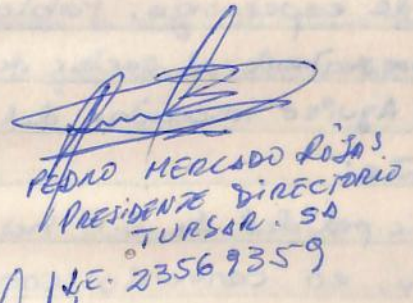 PEDRO MERCADO ROJAS
PRESIDENTE DIRECTORIO
TURSAR. SA
LE. 23569359